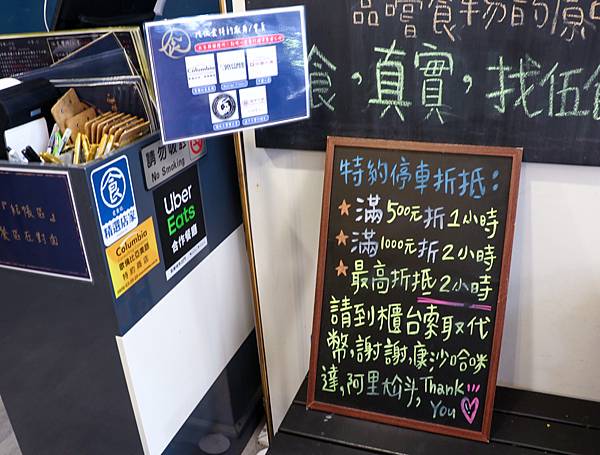 品嚐食物的原
食,真實,找伍食
Columbia
請勿吸菸
No Smoking
食
精選店家
Uber
Eats
合作餐廳
Columbia
特約商店
特約停車折抵：
★滿500元折1小時
★滿1000元折2小時
★最高折抵2小時
請到櫃台索取代
幣,謝謝,康沙哈咪
達,阿里尬斗,Thank
You